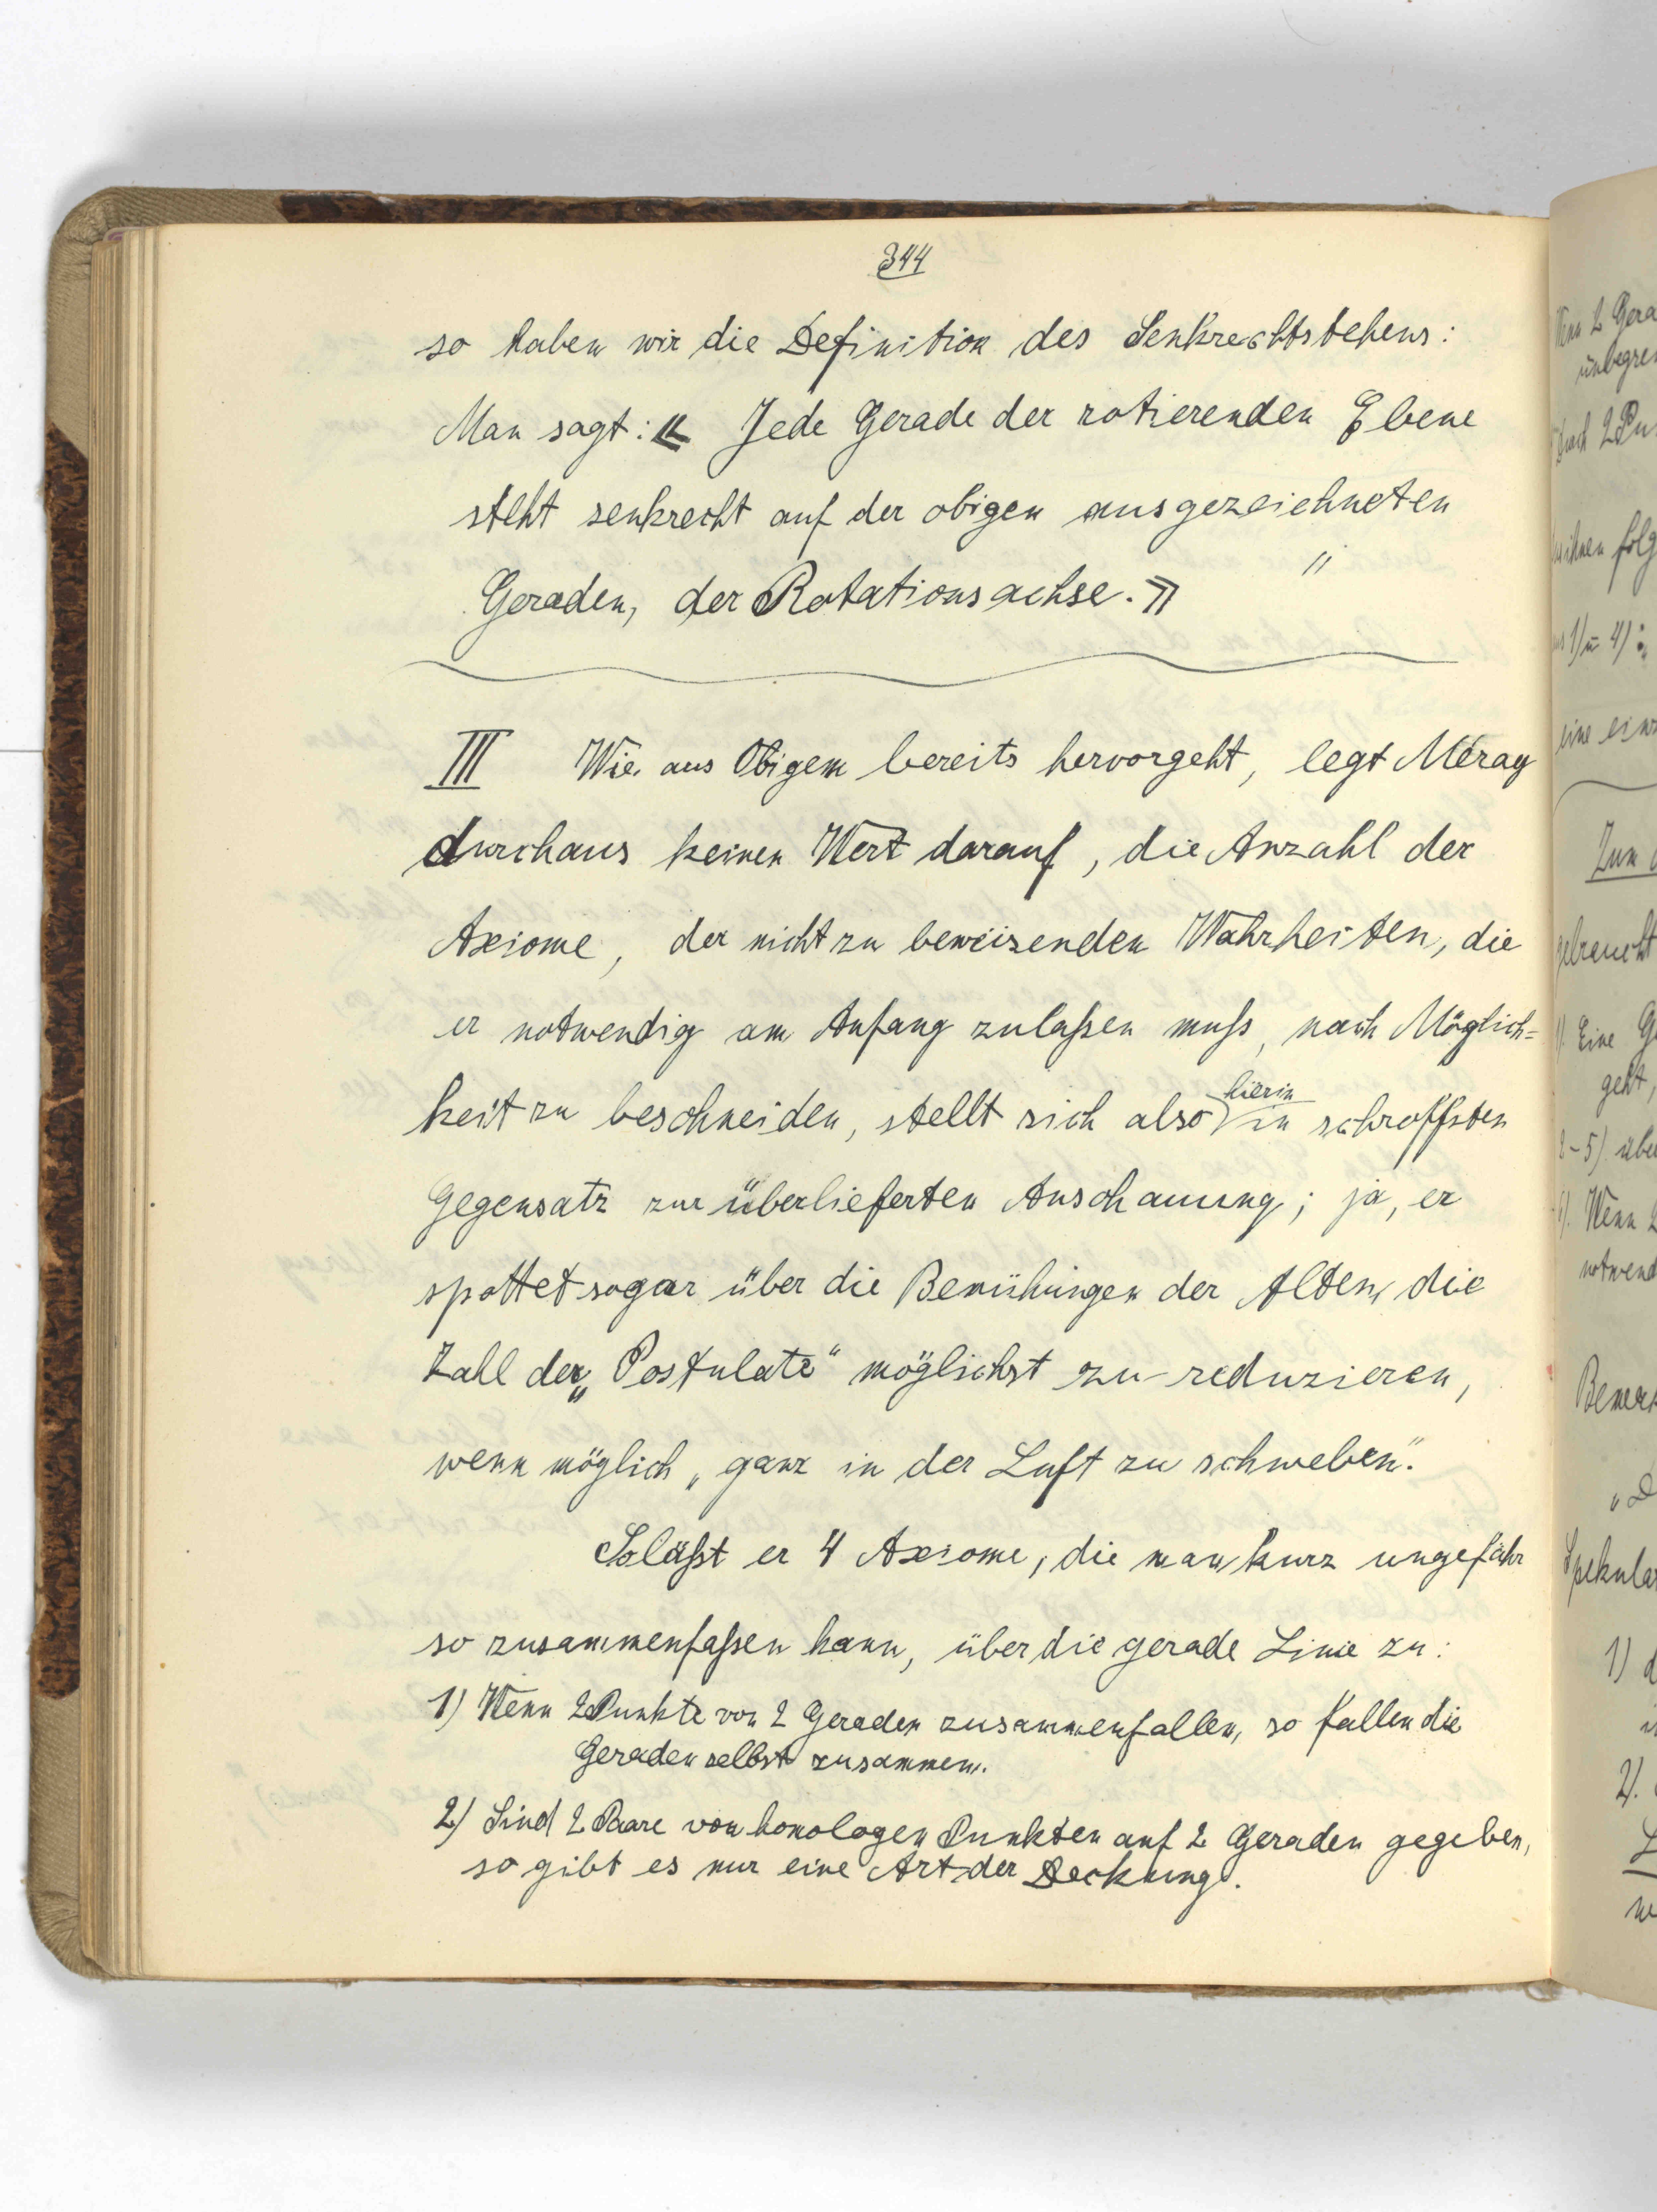 344
so haben wir die Definition des Senkrechtstehens:
Man sagt: « Jede Gerade der rotierenden Ebene
steht senkrecht auf der obigen ausgezeichneten
Geraden, der Rotationsachse. » "
III Wie aus Obigem bereits hervorgeht, legt Méray
durchaus keinen Wert darauf, die Anzahl der
Axiome, der nicht zu beweisenden Wahrheiten, die
er notwendig am Anfang zulaßen muß, nach Möglich=
keit zu beschneiden, stellt sich also hierin in schroffsten
Gegensatz zur überlieferten Anschauung; ja, er
spottet sogar über die Bemühungen der Alten, die
Zahl der „Postulate“ möglichst zu reduzieren,
wenn möglich „ganz in der Luft zu schweben“.
So läßt er 4 Axiome, die man kurz ungefähr
so zusammenfaßen kann, über die gerade Linie zu:
1) Wenn 2 Punkte von 2 Geraden zusammenfallen, so fallen die
Geraden selbst zusammen.
2) Sind 2 Paare von homologen Punkten auf 2 Geraden gegeben,
so gibt es nur eine Art der Deckung.
Wenn 2 Gera
unbegren
durch 2 Pu
folg
1) u 4):
eine
Zum
gebraucht
Eine G
geht,
2-5) übe
Wenn 2
notwend
Bemerk
Spekula
1) d
2).